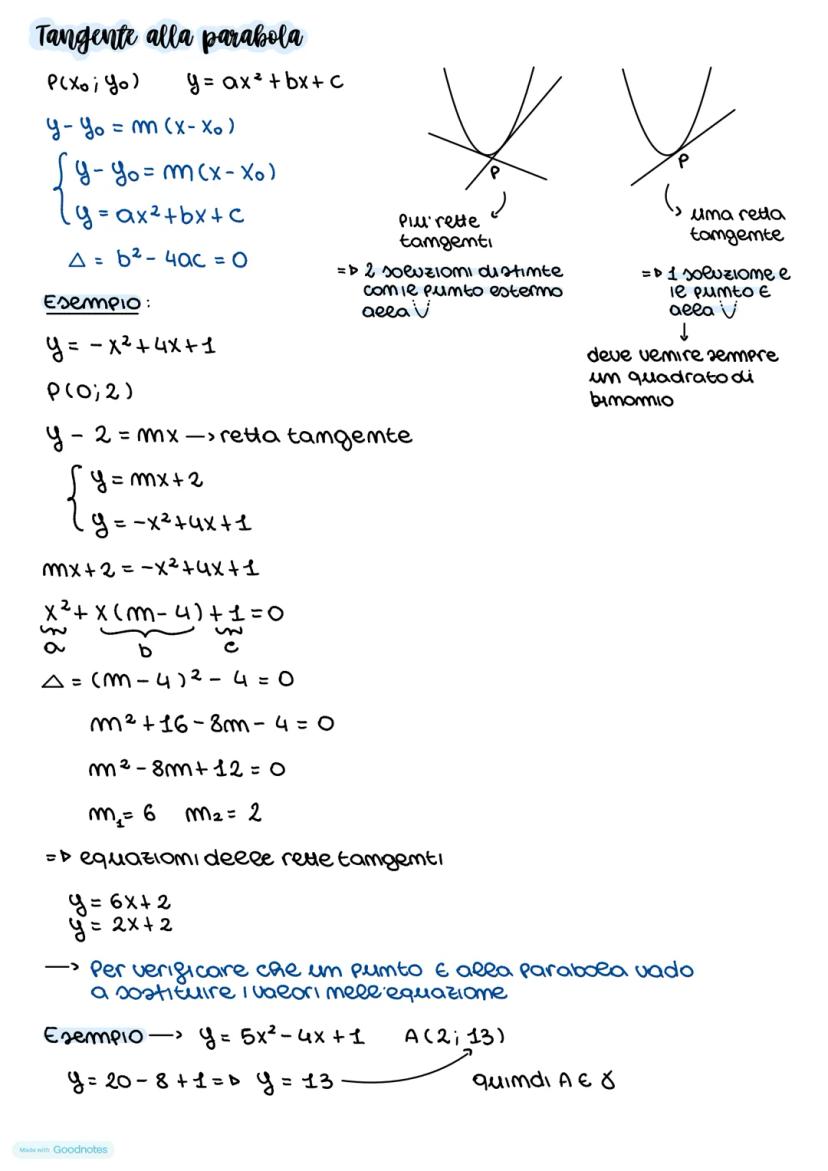 Tangente alla parabola
P(x₀; y₀) y = ax² + bx + c
y - y₀ = m (x - x₀)
{ y - y₀ = m (x - x₀)
y = ax² + bx + c
Δ = b² - 4ac = 0
P
più rette
tangenti
=> 2 soluzioni distinte
con il punto esterno
alla ∪
P
una retta
tangente
=> 1 soluzione e
il punto ∈
alla ∪
↓
deve venire sempre
un quadrato di
binomio
Esempio:
y = -x² + 4x + 1
P(0; 2)
y - 2 = mx → retta tangente
{ y = mx + 2
y = -x² + 4x + 1
mx + 2 = -x² + 4x + 1
x² + x (m - 4) + 1 = 0
a b c
Δ = (m - 4)² - 4 = 0
m² + 16 - 8m - 4 = 0
m² - 8m + 12 = 0
m₁ = 6 m₂ = 2
=> equazioni delle rette tangenti
y = 6x + 2
y = 2x + 2
→ Per verificare che un punto ∈ alla parabola vado
a sostituire i valori nell'equazione
Esempio → y = 5x² - 4x + 1 A(2; 13)
y = 20 - 8 + 1 => y = 13 quindi A ∈ γ
Made with Goodnotes